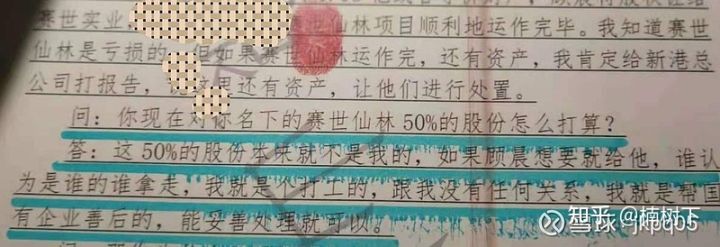 赛世实业 赛世仙林项目顺利地运作完毕。我知道赛世
仙林是亏损的，但如果赛世仙林运作完，还有资产，我肯定给新港总
公司打报告，这里还有资产，让他们进行处置。
问：你现在对你名下的赛世仙林50%的股份怎么打算？
答：这50%的股份本来就不是我的，如果顾晨想要就给他，谁认
为是谁的谁拿走，我就是个打工的，跟我没有任何关系，我就是帮国
有企业善后的，能妥善处理就可以。
知乎 @楠树下
雪球